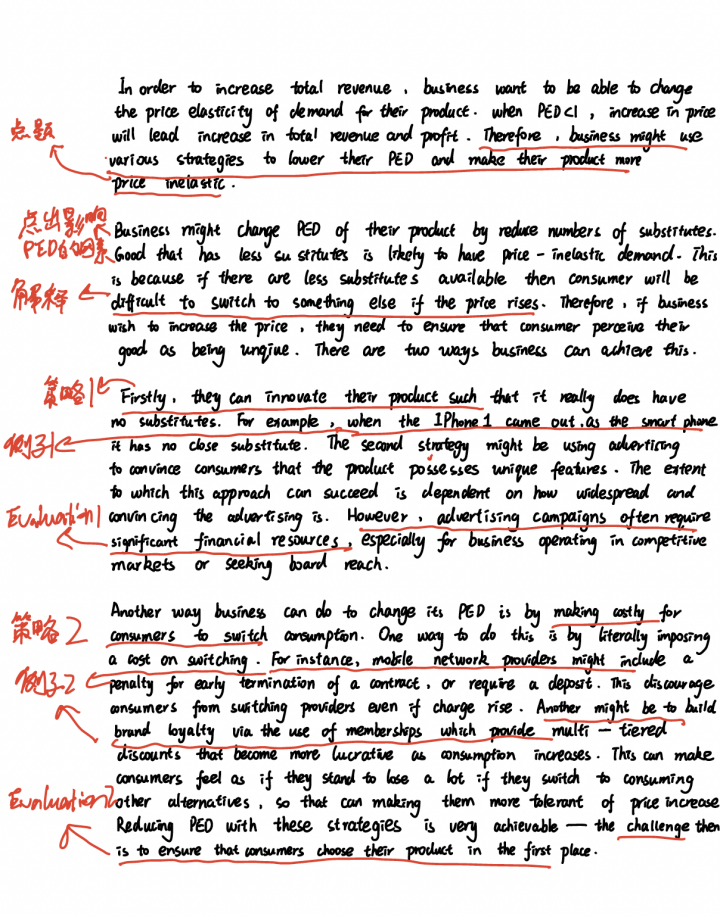 In order to increase total revenue, business want to be able to change
the price elasticity of demand for their product. when PED<1, increase in price
点题
will lead increase in total revenue and profit. Therefore, business might use
various strategies to lower their PED and make their product more
price inelastic.
点出影响
PED的因素
Business might change PED of their product by reduce numbers of substitutes.
Good that has less sustitutes is likely to have price-inelastic demand. This
解释
is because if there are less substitutes available then consumer will be
difficult to switch to something else if the price rises. Therefore, if business
wish to increase the price, they need to ensure that consumer perceive their
good as being unqiue. There are two ways business can achieve this.
策略1
Firstly, they can innovate their product such that it really does have
no substitutes. For example, when the IPhone 1 came out, as the smart phone
例子1
it has no close substitute. The second strategy might be using advertising
to convince consumers that the product possesses unique features. The extent
to which this approach can succeed is dependent on how widespread and
Evaluation1
convincing the advertising is. However, advertising campaigns often require
significant financial resources, especially for business operating in competitive
markets or seeking board reach.
策略2
Another way business can do to change its PED is by making costly for
consumers to switch consumption. One way to do this is by literally imposing
a cost on switching. For instance, mobile network providers might include a
例子2
penalty for early termination of a contract, or require a deposit. This discourage
consumers from switching providers even if charge rise. Another might be to build
brand loyalty via the use of memberships which provide multi-tiered
discounts that become more lucrative as consumption increases. This can make
consumers feel as if they stand to lose a lot if they switch to consuming
Evaluation2
other alternatives, so that can making them more tolerant of price increase
Reducing PED with these strategies is very achievable — the challenge then
is to ensure that consumers choose their product in the first place.